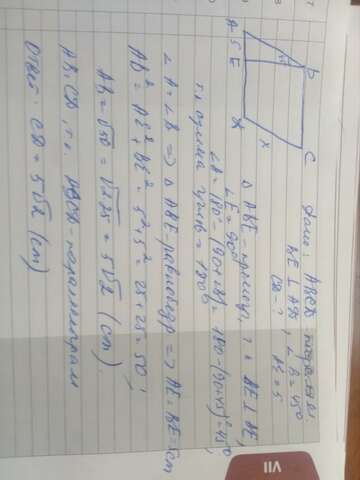 Дано: ABCD паралел.
BE ⊥ AD, ∠A = 45°
CD - ? AE = 5
A 5 E D
B C
x
Δ ABE - прямоуг., т.к. BE ⊥ AE,
∠E = 90°
∠B = 180° - (90+45)° = 180 - (90+45)° = 45°,
т.к сумма углов = 180°
∠A = ∠B ⇒ Δ ABE равнобедр ⇒ AE = BE = 5cm
AB² = AE² + BE² = 5² + 5² = 25 + 25 = 50;
AB = √50 = √2·25 = 5√2 (cm)
AB = CD, т.к. ABCD - параллелограм
Ответ: CD = 5√2 (cm)
VII